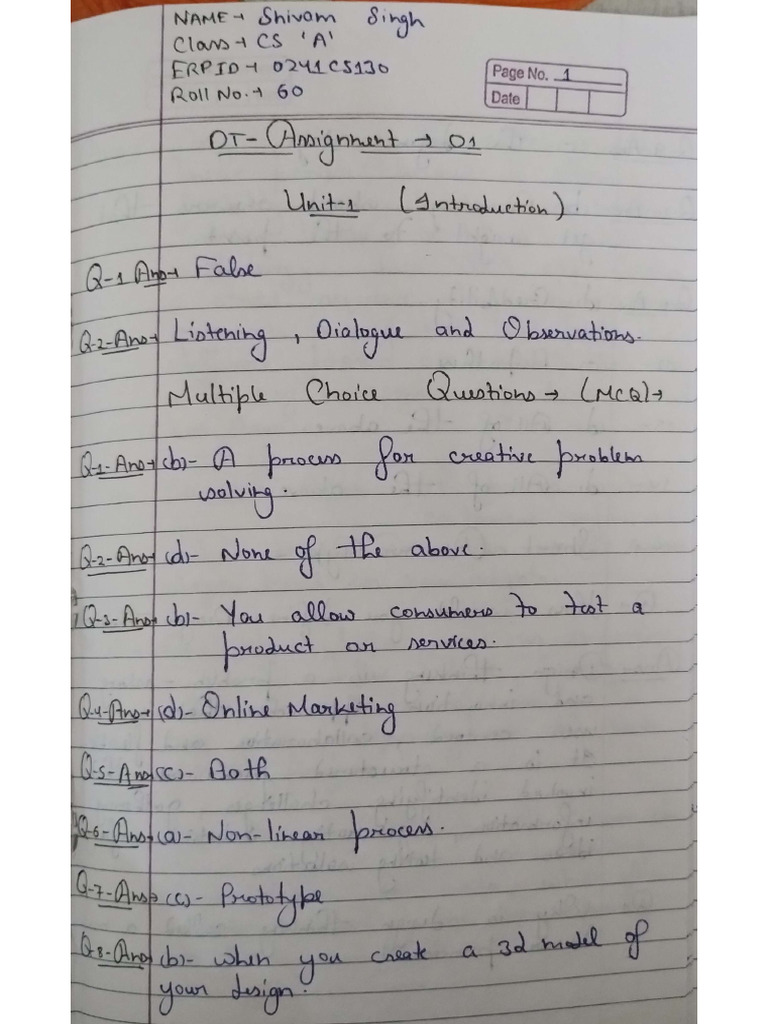 NAME → Shivam Singh
Class → CS 'A'
ERP ID → 0241CS130
Roll No. → 60
Page No. 1
Date
DT- Assignment → 01
Unit-1 (Introduction).
Q-1 Ans→ False
Q-2-Ans→ Listening, Dialogue and Observations.
Multiple Choice Questions → (MCQ)→
Q-1-Ans→ (b)- A process for creative problem
solving.
Q-2-Ans→ (d)- None of the above.
Q-3-Ans→ (b)- You allow consumers to test a
product or services.
Q-4-Ans→ (d)- Online Marketing
Q-5-Ans→ (c)- Both
Q-6-Ans→ (a)- Non-linear process.
Q-7-Ans→ (c)- Prototype
Q-8-Ans→ (b)- when you create a 3d model of
your design.